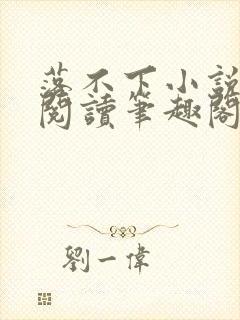 落不下小說
閱讀筆趣閣
劉一偉